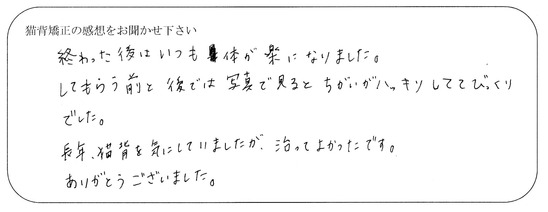 猫背矯正の感想をお聞かせ下さい
終わった後はいつも体が楽になりました。
してもらう前と後では写真で見るとちがいがハッキリしててびっくり
でした。
長年、猫背を気にしていましたが、治ってよかったです。
ありがとうございました。